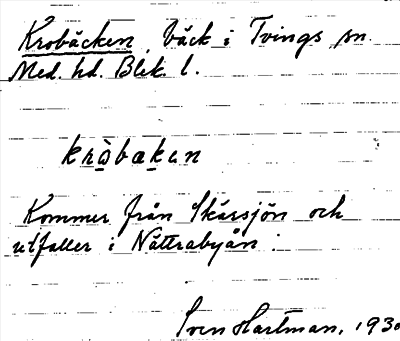 Krobäcken, bäck i Tvings sn.
Med. hd. Blek. l.
kròbaken
Kommer från Skärsjön och
utfaller i Nättrabyån.
Sven Hartman, 1930